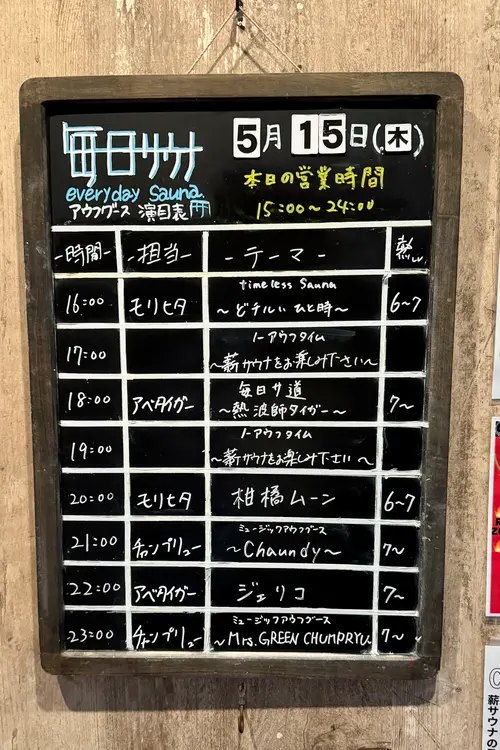 毎日サウナ
everyday Sauna.
アウフグース 演目表
5月15日(木)
本日の営業時間
15:00〜24:00
-時間- -担当- -テーマ- 熱
16:00 モリヒタ timeless Sauna 6〜7
〜どチルい ひと時〜
17:00 ノーアウフタイム
〜薪サウナをお楽しみ下さい〜
18:00 アベタイガー 毎日サ道 7〜
〜熱波師タイガー〜
19:00 ノーアウフタイム
〜薪サウナをお楽しみ下さい〜
20:00 モリヒタ 柑橘ムーン 6〜7
21:00 チャンプリュー ミュージックアウフグース 7〜
〜Chaundy〜
22:00 アベタイガー ジェリコ 7〜
23:00 チャンプリュー ミュージックアウフグース 7〜
〜Mrs.GREEN CHUMPRYU
薪サウナの